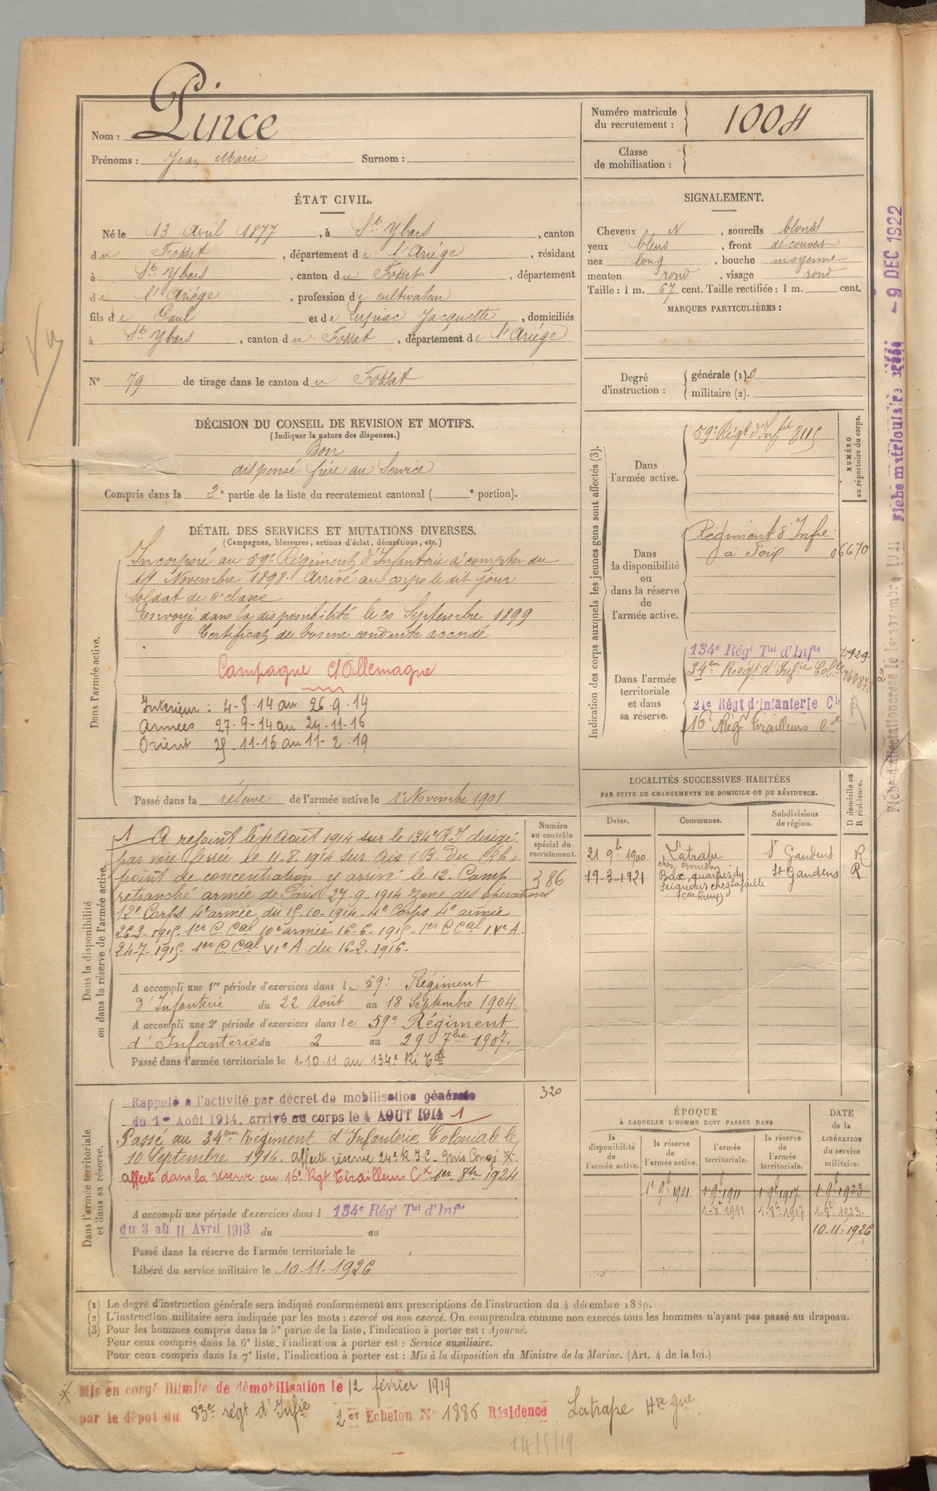 Nom : Pince
Prénoms : Jean Marie Surnom :
Numéro matricule du recrutement : 1004
Classe de mobilisation :
ÉTAT CIVIL.
Né le 13 Avril 1877, à St Ybars, canton
du Fossat, département de l'Ariége, résidant
à St Ybars, canton du Fossat, département
de l'Ariége, profession de cultivateur
fils de Paul et de Jacquette, domiciliés
à St Ybars, canton du Fossat, département de l'Ariége
N° 79 de tirage dans le canton du Fossat
SIGNALEMENT.
Cheveux N, sourcils blonds
yeux bleus, front découvert
nez long, bouche moyenne
menton rond, visage rond
Taille : 1 m. 67 cent. Taille rectifiée : 1 m. cent.
MARQUES PARTICULIÈRES :
Degré d'instruction : générale (1). 0
militaire (2).
DÉCISION DU CONSEIL DE REVISION ET MOTIFS.
(Indiquer la nature des dispenses.)
Bon
dispensé frère au Service
Compris dans la 2e partie de la liste du recrutement cantonal ( e portion).
DÉTAIL DES SERVICES ET MUTATIONS DIVERSES.
(Campagnes, blessures, actions d'éclat, décorations, etc.)
Dans l'armée active.
Incorporé au 59e Régiment d'Infanterie à compter du
14 Novembre 1898. Arrivé au corps le dit jour
Soldat de 2e classe
Envoyé dans la disponibilité le 20 Septembre 1899
Certificat de bonne conduite accordé
Campagne c/Allemagne
Intérieur : 4-8-14 au 26-9-14
Armées 27-9-14 au 24-11-16
Orient 25-11-16 au 11-2-19
Passé dans la réserve de l'armée active le 1er Novembre 1901
Indication des corps auxquels les jeunes gens sont affectés (3).
NUMÉRO au répertoire du corps.
Dans l'armée active.
59e Régt d'Infie 8115
Dans la disponibilité ou dans la réserve de l'armée active.
Régiment d'Infie
à Foix 06670
Dans l'armée territoriale et dans sa réserve.
134e Régt Tal d'Infie
34em Régt d'Infie Cole
24e Régt d'Infanterie Cle
16e Régt Tirailleurs
LOCALITÉS SUCCESSIVES HABITÉES
PAR SUITE DE CHANGEMENTS DE DOMICILE OU DE RÉSIDENCE.
Dates. Communes. Subdivisions de région. D domicile ou R résidence.
21 9bre 1900 Latrape St Gaudens R
19-3-1921 St Gaudens R
Numéro au contrôle spécial du recrutement.
386
Dans la disponibilité ou dans la réserve de l'armée active.
1 A rejoint le 4 Août 1914 sur le 134e R.I dirigé
par voie ferrée le 11-8-1914 sur
point de concentration y arrivé le 12. Camp
retranché armée de Paris 27-9-1914 zone des opérations
12e Corps 4e armée du 15-10-1914. 4e Corps 4e armée
26-3-1915 1er C.Cal 10e armée 16-6-1915 1er C.Cal IVe A.
24-7-1915 1er C.Cal VIe A. du 16-2-1916.
A accompli une 1re période d'exercices dans le 59e Régiment
d'Infanterie du 22 Août au 18 Septembre 1904.
A accompli une 2e période d'exercices dans le 59e Régiment
d'Infanterie du 2 au 29 7bre 1907.
Passé dans l'armée territoriale le 1-10-11 au 134e
Dans l'armée territoriale et dans sa réserve.
320
Rappelé à l'activité par décret de mobilisation générale
du 1er Août 1914, arrivé au corps le 4 AOUT 1914 1
Passé au 34em Régiment d'Infanterie Coloniale le
10 Septembre 1914.
affecté dans la réserve au 16e Rgt Tirailleurs
A accompli une période d'exercices dans l 134e Régt Tal d'Infie
du 3 au 11 Avril 1913 du au
Passé dans la réserve de l'armée territoriale le
Libéré du service militaire le 10-11-1926
ÉPOQUE
À LAQUELLE L'HOMME DOIT PASSER DANS
la disponibilité de l'armée active. la réserve de l'armée active. l'armée territoriale. la réserve de l'armée territoriale.
DATE de la LIBÉRATION du service militaire.
1er 9bre 1901 1-9-1911 1-9-1917 1-9-1923
10-11-1926
(1) Le degré d'instruction générale sera indiqué conformément aux prescriptions de l'instruction du 4 décembre 1889.
(2) L'instruction militaire sera indiquée par les mots : exercé ou non exercé. On comprendra comme non exercés tous les hommes n'ayant pas passé au drapeau.
(3) Pour les hommes compris dans la 5e partie de la liste, l'indication à porter est : Ajourné.
Pour ceux compris dans la 6e liste, l'indication à porter est : Service auxiliaire.
Pour ceux compris dans la 7e liste, l'indication à porter est : Mis à la disposition du Ministre de la Marine. (Art. 4 de la loi.)
Mis en congé illimité de démobilisation le 12 février 1919
par le dépôt du 83e régt d'Infie 2e Echelon N° 1886 Résidence Latrape Hte Gne.
14/5/19
- 9 DEC 1922